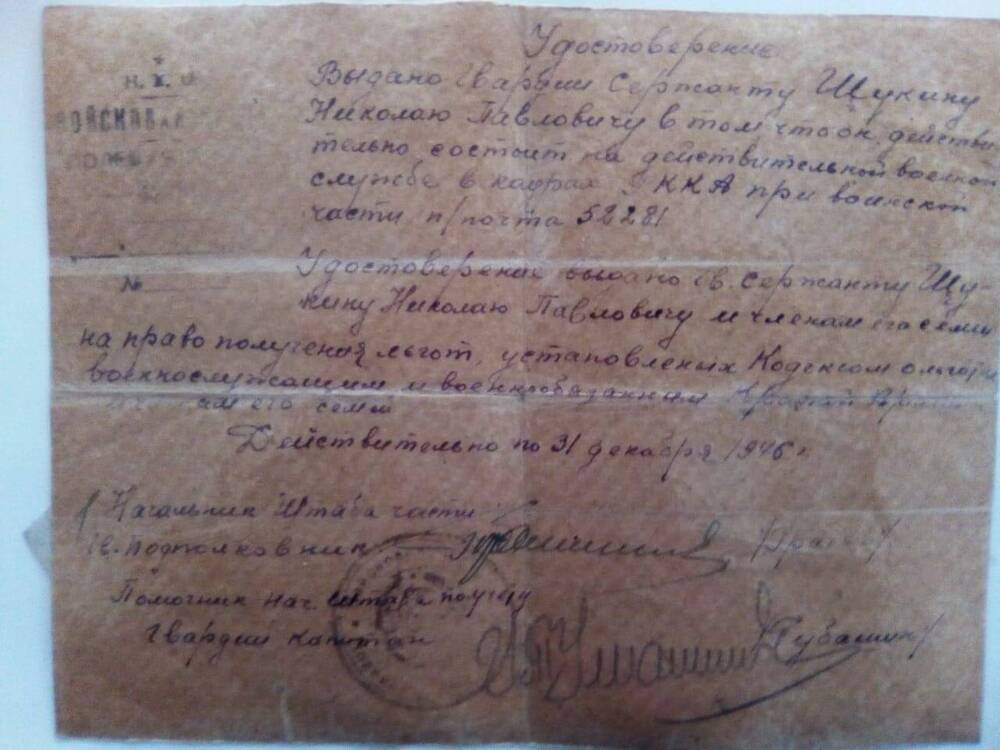 Удостоверение
Выдано Гвардии Сержанту Щукину
Николаю Павловичу в том что он действи
тельно состоит на действительной военной
службе в кадрах РККА при воинской
части п/почта 52281
Н.К.О
ВОЙСКОВАЯ
№
Удостоверение выдано Гв. Сержанту Щу-
кину Николаю Павловичу и членам его семьи
на право получения льгот, установленых Кодексом о льготах
военнослужащим и военнообязанным
ам его семьи
Действительно по 31 декабря 1946 г.
Начальник Штаба части
Гв. Подполковник
Помочник нач штаба по учёту
Гвардии капитан /Губашин/